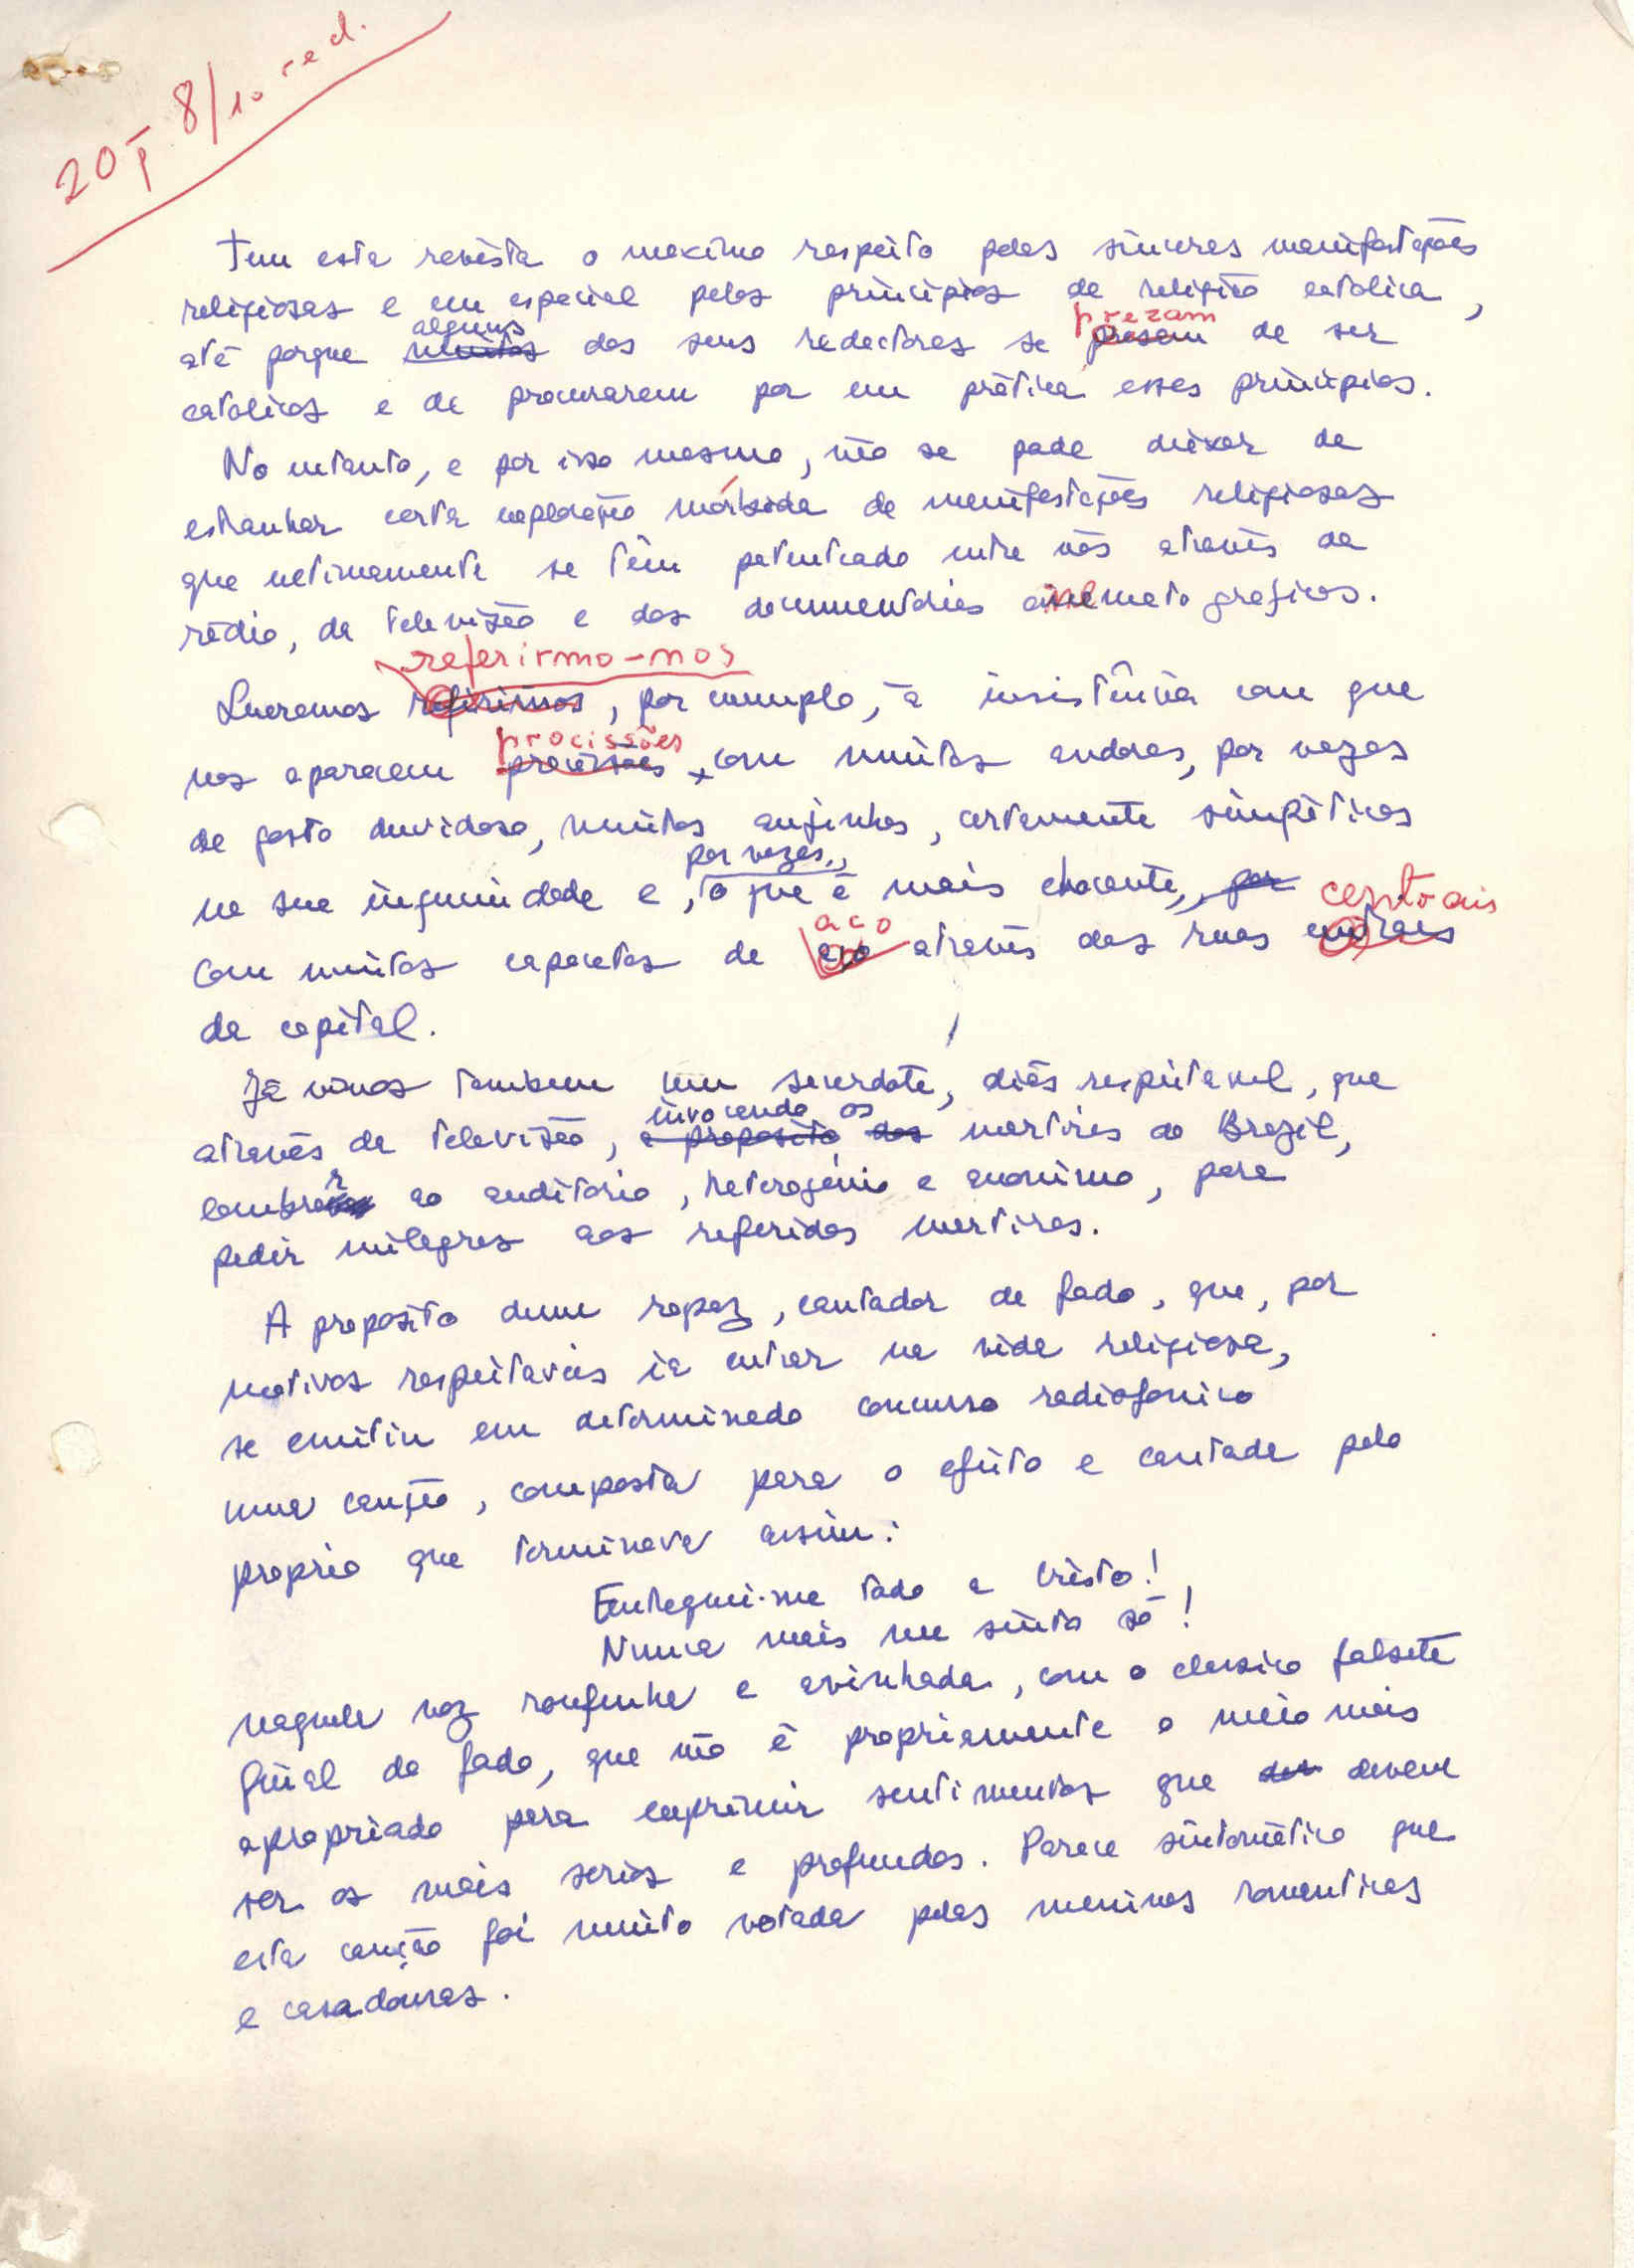 20 p 8/10 red.
Tem esta revista o maximo respeito pelas sinceras manifestações
religiosas e em especial pelos principios da religião catolica,
alguns prezam
até porque muitos dos seus redactores se presam de ser
catolicos e de procurarem por em prática esses principios.
No entanto, e por isso mesmo, não se pode deixar de
estranhar certa exploração mórbida de manifestações religiosas
que ultimamente se têm patenteado entre nós através da
rádio, da televisão e dos documentários cinematograficos.
referirmo-nos
Queremos referirmos, por exemplo, à insistência com que
procissões
nos aparecem procissões com muitos andores, por vezes
de gosto duvidoso, muitos anjinhos, certamente simpáticos
por vezes,
na sua ingenuidade e, o que é mais chocante, por centrais
aço
com muitos capacetes de aço através das ruas centrais
da capital.
Já vimos tambem um sacerdote, aliás respeitavel, que
invocando os
através da televisão, a proposito dos martires do Brazil,
lembrar ao auditorio, heterogénio e anonimo, para
pedir milagres aos referidos martires.
A proposito dum rapaz, cantador de fado, que, por
motivos respeitaveis ia entrar na vida religiosa,
se emitiu em determinado concurso radiofonico
uma canção, composta para o efeito e cantada pelo
proprio que terminava assim:
Entreguei-me todo a Cristo!
Nunca mais me sinto só!
naquela voz roufenha e avinhada, com o classico falsete
final do fado, que não é propriamente o meio mais
apropriado para exprimir sentimentos que devem
ser os mais serios e profundos. Parece sintomático que
esta canção foi muito votada pelas meninas romanticas
e casadouras.